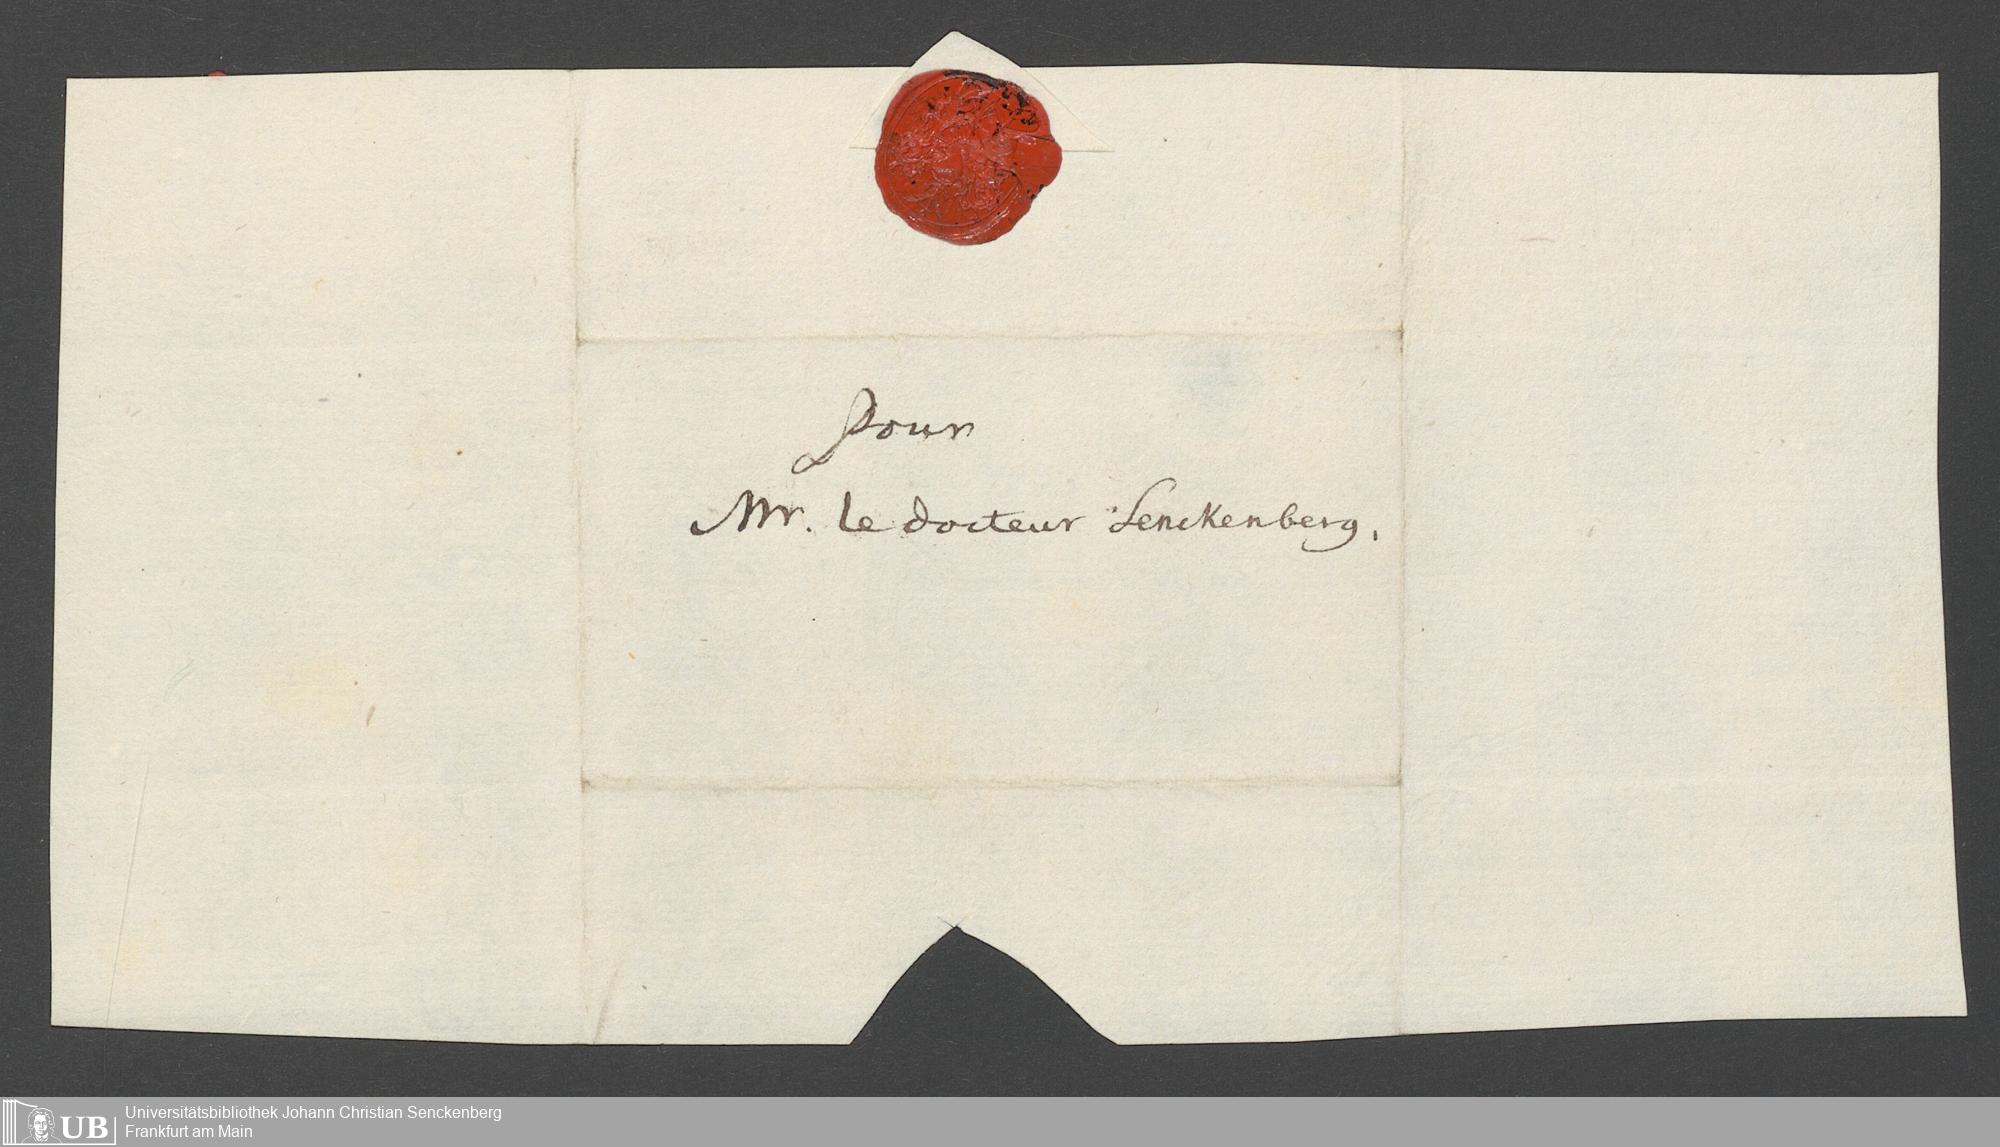 Pour
Mr. le docteur Senckenberg.
UB
Universitätsbibliothek Johann Christian Senckenberg
Frankfurt am Main